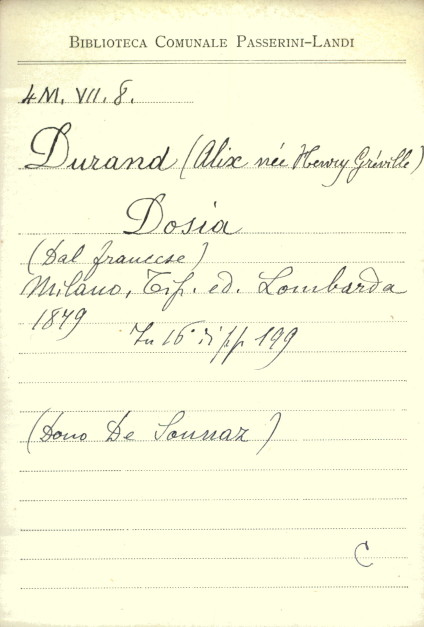 BIBLIOTECA COMUNALE PASSERINI-LANDI
4M. VII. 8.
Durand (Alix née Henry Gréville)
Dosia
(Dal francese)
Milano, Tip. ed. Lombarda
1879 In 16° di pp 199
(Dono De Sonnaz)
C